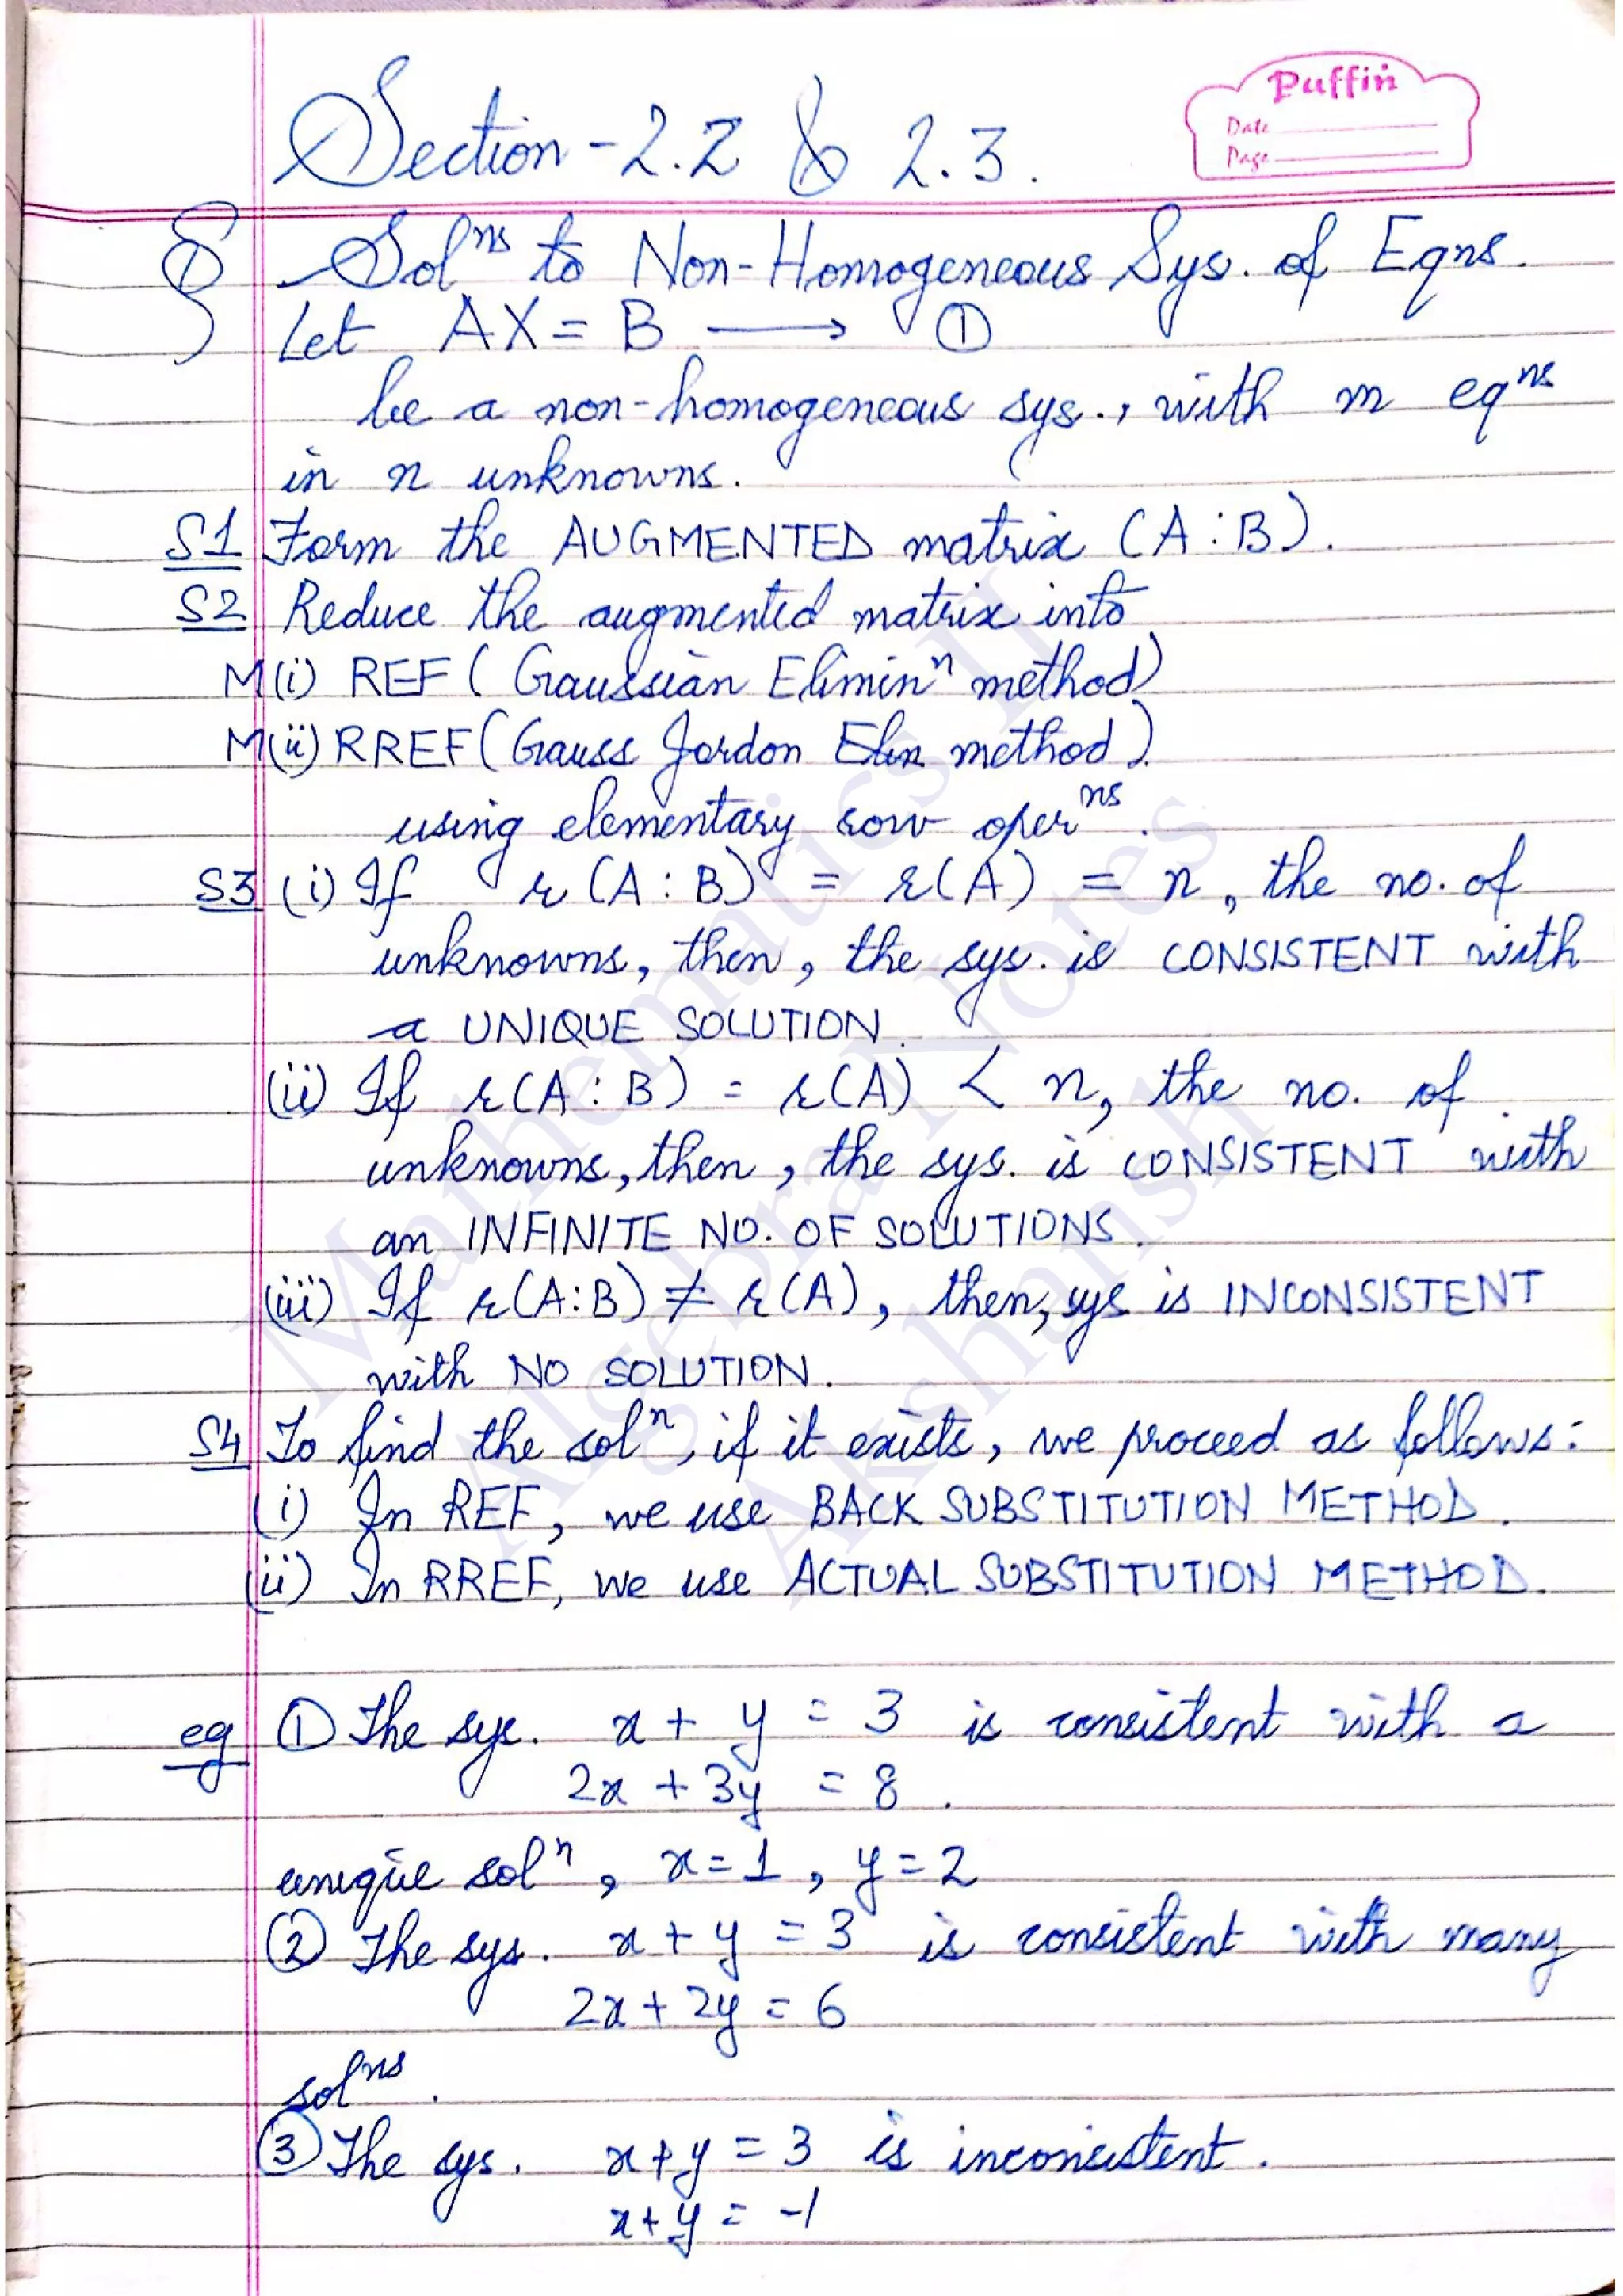 Puffin
Date
Page
Section - 2.2 & 2.3.
§ Solⁿˢ to Non-Homogeneous Sys. of Eqns.
Let AX = B ⟶ ①
be a non-homogeneous sys., with m eqⁿˢ
in n unknowns.
S1 Form the AUGMENTED matrix (A : B).
S2 Reduce the augmented matrix into
M(i) REF ( Gaussian Eliminⁿ method)
M(ii) RREF (Gauss Jordon Elin method).
using elementary row operⁿˢ.
S3 (i) If r (A : B) = r(A) = n, the no. of
unknowns, then, the sys. is CONSISTENT with
a UNIQUE SOLUTION.
(ii) If r(A : B) = r(A) < n, the no. of
unknowns, then, the sys. is CONSISTENT with
an INFINITE NO. OF SOLUTIONS.
(iii) If r(A:B) ≠ r(A), then, sys is INCONSISTENT
with NO SOLUTION.
S4 To find the solⁿ, if it exists, we proceed as follows:
(i) In REF, we use BACK SUBSTITUTION METHOD.
(ii) In RREF, we use ACTUAL SUBSTITUTION METHOD.
eg ① The sys. x + y = 3 is consistent with a
2x + 3y = 8.
unique solⁿ, x = 1, y = 2
② The sys. x + y = 3 is consistent with many
2x + 2y = 6
solⁿˢ.
③ The sys. x+y = 3 is inconsistent.
x+y = -1
Mathematics II
Algebra Notes
Akshansh